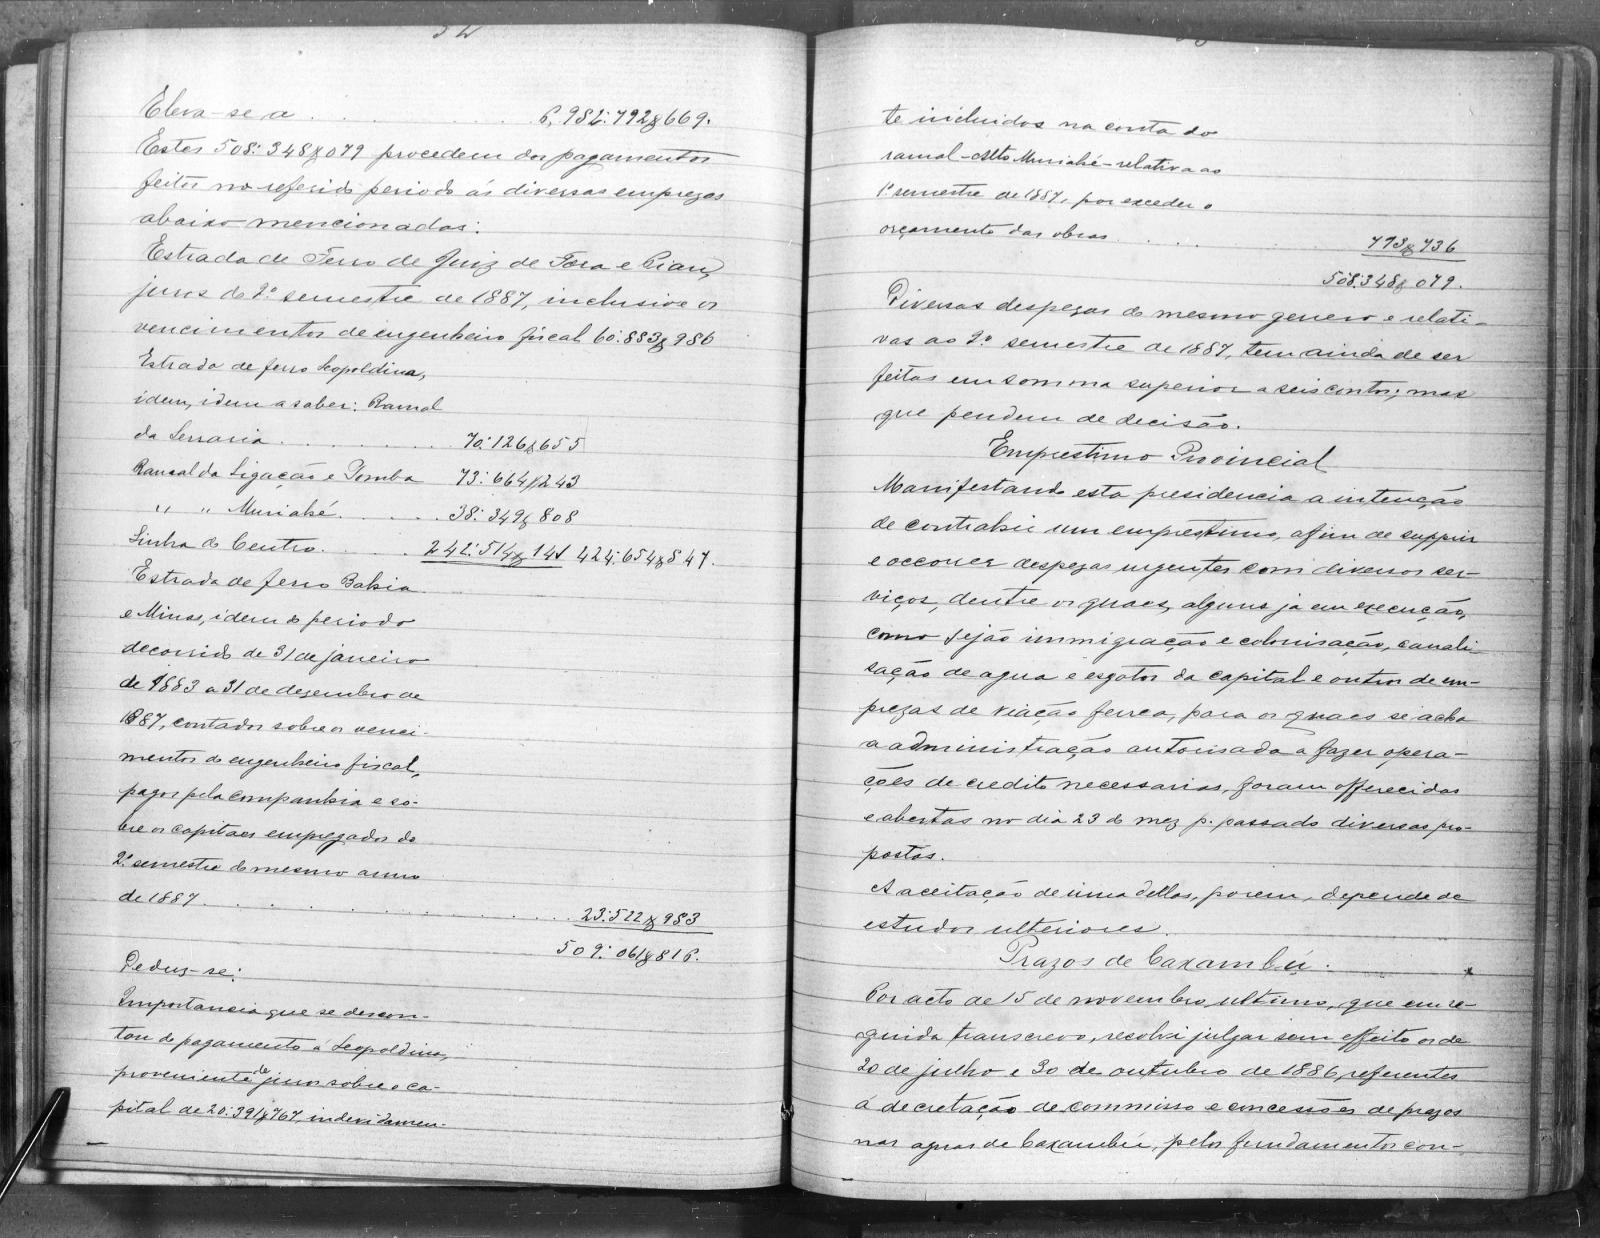 Eleva-se a . . . . . . . 6,982:792$669.
Estes 508:348$079 procedem dos pagamentos
feitos no referido periodo ás diversas emprezas
abaixo mencionadas:
Estrada de Ferro de Juiz de Fora e Piau,
juros do 2º semestre de 1887, inclusive os
vencimentos do engenheiro fiscal 60:883$986
Estrada de ferro Leopoldina,
idem, idem a saber: Ramal
da Serraria . . . . . . . 70:126$655
Ramal da Ligação e Pomba 73:664$243
" " Muriahé . . . . . 38:349$808
Linha do Centro . . . . 242:514$141 424:654$847.
Estrada de ferro Bahia
e Minas, idem do periodo
decorrido de 31 de janeiro
de 1883 a 31 de dezembro de
1887, contados sobre os venci-
mentos do engenheiro fiscal,
pagos pela companhia e so-
bre os capitaes empregados do
2º semestre do mesmo anno
de 1887 . . . . . . . . . . . 23:522$983
509:061$816.
Deduz-se:
Importancia que se descon-
tou do pagamento á Leopoldina,
proveniente de juros sobre o ca-
pital de 20:391$767, indevidamen-
te incluidos na conta do
ramal-Alto Muriahé-relativa ao
1º semestre de 1887, por exceder o
orçamento das obras . . . . 713$736
508:348$079.
Diversas despezas do mesmo genero e relati-
vas ao 2º semestre de 1887, tem ainda de ser
feitas em somma superior a seis contos; mas
que pendem de decisão.
Emprestimo Provincial
Manifestando esta presidencia a intenção
de contrahir um emprestimo, afim de supprir
e occorrer despezas urgentes com diversos ser-
viços, dentre os quaes, alguns ja em execução,
como sejão immigração e colonisação, canali-
sação de agua e esgotos da capital e outros de em-
prezas de viação ferrea, para os quaes se acha
a administração autorisada a fazer opera-
ções de credito necessarias, foram offerecidas
e abertas no dia 23 do mez p. passado diversas pro-
postas.
A aceitação de uma dellas, porem, depende de
estudos ulteriores.
Prazos de Caxambú.
Por acto de 15 de novembro ultimo, que em se-
guida transcrevo, resolvi julgar sem effeito os de
20 de julho e 30 de outubro de 1886, referentes
á decretação de commisso e concessões de prazos
nas aguas de Caxambú, pelos fundamentos con-